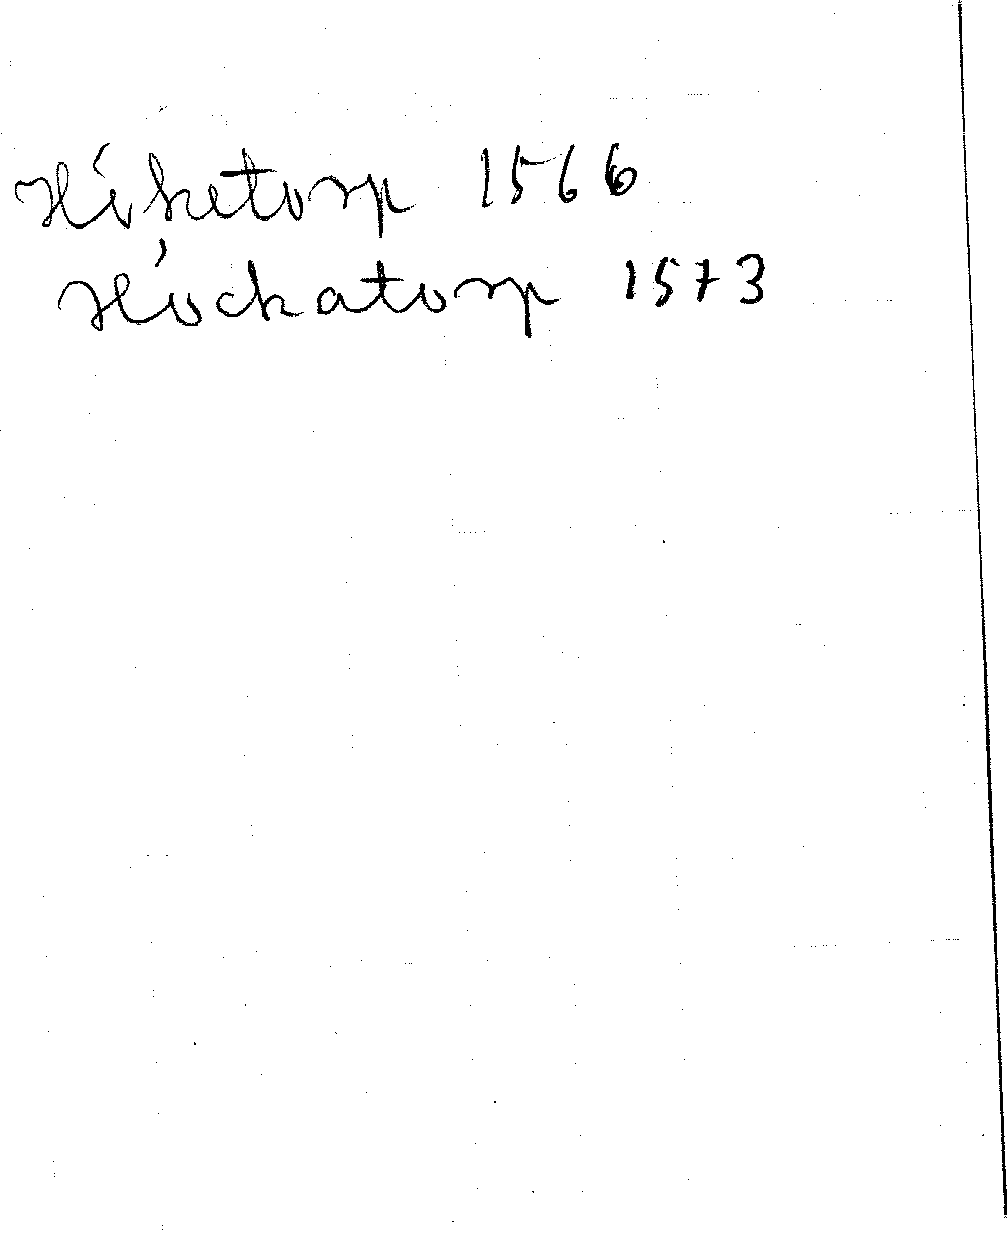 Hóketorp 1566
Hóckatorp 1573